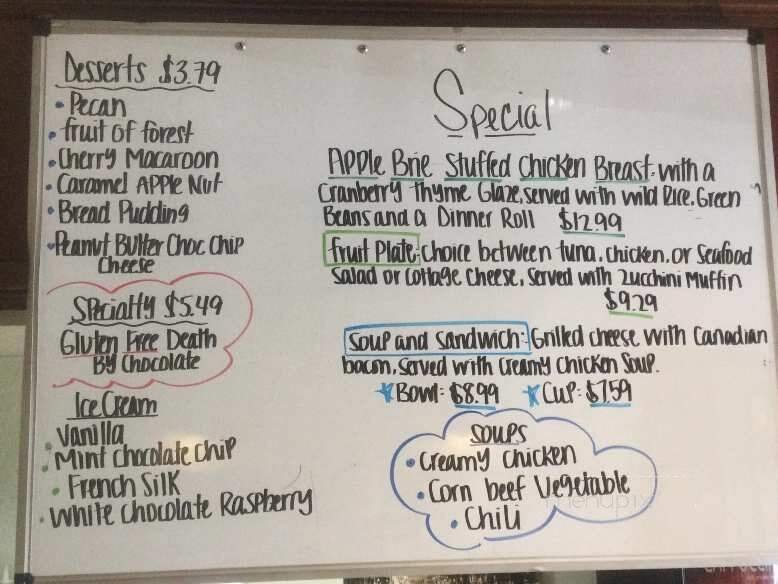 Desserts $3.79
• Pecan
• fruit of forest
• Cherry Macaroon
• Caramel Apple Nut
• Bread Pudding
• Peanut Butter Choc Chip
Cheese
Specialty $5.49
Gluten Free Death
By Chocolate
Ice Cream
• Vanilla
• Mint chocolate chip
• French Silk
• White Chocolate Raspberry
Special
Apple Brie Stuffed Chicken Breast: with a
Cranberry Thyme Glaze, served with wild Rice, Green
Beans and a Dinner Roll $12.99
fruit Plate: Choice between tuna, chicken, or Seafood
Salad or Cottage Cheese, Served with Zucchini Muffin
$9.29
Soup and Sandwich: Grilled cheese with Canadian
bacon, Served with Creamy Chicken Soup.
★Bowl: $8.99 ★Cup: $7.59
SOUPS
• Creamy Chicken
• Corn beef Vegetable
• Chili
menupix